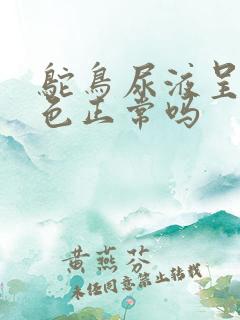 鸵鸟尿液呈
色正常吗
黄燕芬
未经同意禁止转载